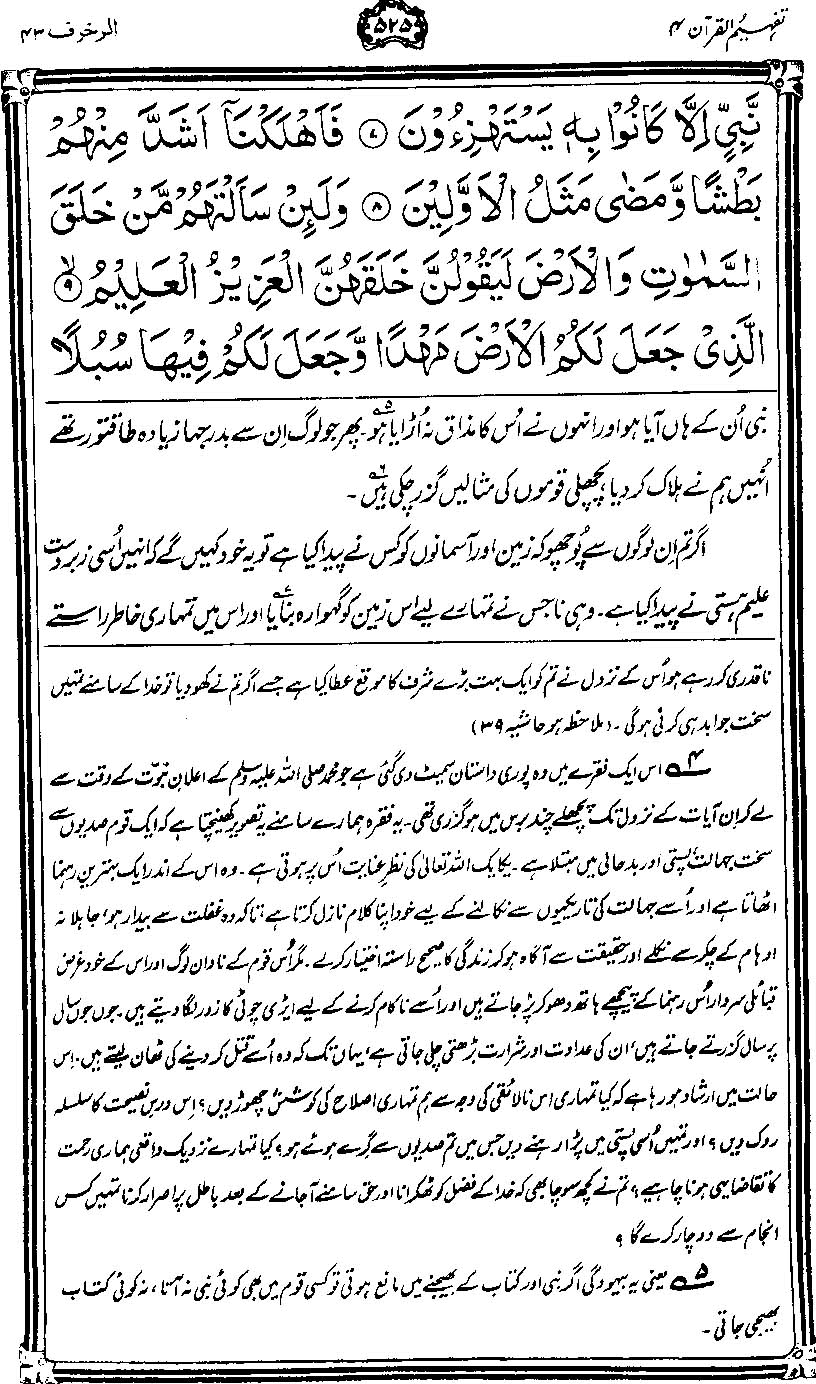 تفہیم القرآن ۴
۵۲۵
الزخرف ۴۳
نَّبِيٍّ اِلَّا كَانُوْا بِهٖ يَسْتَهْزِءُوْنَ ۷ فَاَهْلَكْنَآ اَشَدَّ مِنْهُمْ
بَطْشًا وَّمَضٰى مَثَلُ الْاَوَّلِيْنَ ۸ وَلَىِٕنْ سَاَلْتَهُمْ مَّنْ خَلَقَ
السَّمٰوٰتِ وَالْاَرْضَ لَيَقُوْلُنَّ خَلَقَهُنَّ الْعَزِيْزُ الْعَلِيْمُ ۹ۙ
الَّذِيْ جَعَلَ لَكُمُ الْاَرْضَ مَهْدًا وَّجَعَلَ لَكُمْ فِيْهَا سُبُلًا
نبی اُن کے ہاں آیا ہو اور انہوں نے اُس کا مذاق نہ اُڑایا ہو۵۔ پھر جو لوگ اِن سے بدرجہا زیادہ طاقتور تھے
اُنہیں ہم نے ہلاک کر دیا، پچھلی قوموں کی مثالیں گزر چکی ہیں۶۔
اگر تم اِن لوگوں سے پُوچھو کہ زمین اور آسمانوں کو کس نے پیدا کیا ہے تو یہ خود کہیں گے کہ انہیں اُسی زبردست
علیم ہستی نے پیدا کیا ہے۔ وہی نا جس نے تمہارے لیے اس زمین کو گہوارہ بنایا۷ اور اس میں تمہاری خاطر راستے
ناقدری کر رہے ہو اُس کے نزول نے تم کو ایک بہت بڑے شرف کا موقع عطا کیا ہے جسے اگر تم نے کھو دیا تو خدا کے سامنے تمہیں
سخت جواب دہی کرنی ہوگی۔ (ملاحظہ ہو حاشیہ ۳۹)
۴ اس ایک فقرے میں وہ پوری داستان سمیٹ دی گئی ہے جو محمد صلی اللہ علیہ وسلم کے اعلانِ نبوت کے وقت سے
لے کر ان آیات کے نزول تک پچھلے چند برس میں ہو گزری تھی۔ یہ فقرہ ہمارے سامنے یہ تصویر کھینچتا ہے کہ ایک قوم صدیوں سے
سخت جہالت، پستی اور بدحالی میں مبتلا ہے۔ یکایک اللہ تعالیٰ کی نظرِ عنایت اُس پر ہوتی ہے۔ وہ اس کے اندر ایک بہترین رہنما
اٹھاتا ہے اور اُسے جہالت کی تاریکیوں سے نکالنے کے لیے خود اپنا کلام نازل کرتا ہے، تاکہ وہ غفلت سے بیدار ہو، جاہلانہ
اوہام کے چکر سے نکلے اور حقیقت سے آگاہ ہو کر زندگی کا صحیح راستہ اختیار کرے۔ مگر اُس قوم کے نادان لوگ اور اس کے خود غرض
قبائلی سردار اُس رہنما کے پیچھے ہاتھ دھو کر پڑ جاتے ہیں اور اُسے ناکام کرنے کے لیے ایڑی چوٹی کا زور لگا دیتے ہیں۔ جوں جوں سال
پر سال گزرتے جاتے ہیں، ان کی عداوت اور شرارت بڑھتی چلی جاتی ہے، یہاں تک کہ وہ اُسے قتل کر دینے کی ٹھان لیتے ہیں۔ اِس
حالت میں ارشاد ہو رہا ہے کہ کیا تمہاری اس نالائقی کی وجہ سے ہم تمہاری اصلاح کی کوشش چھوڑ دیں؟ اِس درسِ نصیحت کا سلسلہ
روک دیں؟ اور تمہیں اُسی پستی میں پڑا رہنے دیں جس میں تم صدیوں سے گرے ہوئے ہو؟ کیا تمہارے نزدیک واقعی ہماری رحمت
کا تقاضا یہی ہونا چاہیے؟ تم نے کچھ سوچا بھی کہ خدا کے فضل کو ٹھکرانا اور حق سامنے آجانے کے بعد باطل پر اصرار کرنا تمہیں کس
انجام سے دوچار کرے گا؟
۵ یعنی یہ بیہودگی اگر نبی اور کتاب کے بھیجنے میں مانع ہوتی تو کسی قوم میں بھی کوئی نبی نہ آتا، نہ کوئی کتاب
بھیجی جاتی۔